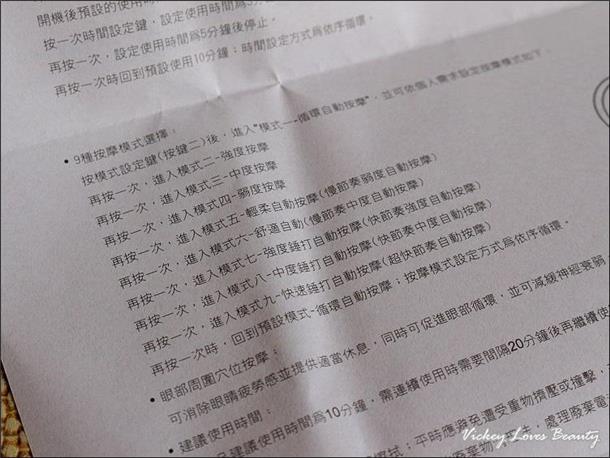 開機後預設的使用時間為
按一次時間設定鍵，設定使用時間為5分鐘
再按一次，設定使用時間為5分鐘後停止。
再按一次時回到預設使用10分鐘；時間設定方式為依序循環。
• 9種按摩模式選擇：
按摩模式設定鍵(按鍵二)後，進入"模式一-循環自動按摩"，並可依個人需求設定按摩模式如下，
再按一次，進入模式二-強度按摩
再按一次，進入模式三-中度按摩
再按一次，進入模式四-弱度按摩
再按一次，進入模式五-輕柔自動按摩(慢節奏弱度自動按摩)
再按一次，進入模式六-舒適自動(慢節奏中度自動按摩)
再按一次，進入模式七-強度錘打自動按摩(快節奏強度自動按摩)
再按一次，進入模式八-中度錘打自動按摩(快節奏中度自動按摩)
再按一次，進入模式九-快速錘打自動按摩(超快節奏自動按摩)
再按一次時，回到預設模式-循環自動按摩；按摩模式設定方式為依序循環。
• 眼部周圍穴位按摩：
可消除眼睛疲勞感並提供適當休息，同時可促進眼部循環，並可減緩神經衰弱
• 建議使用時間：
建議使用時間為10分鐘，需連續使用時需要間隔20分鐘後再繼續使
平時應避免遭受重物擠壓或撞擊，
處理廢棄電
Vickey Loves Beauty